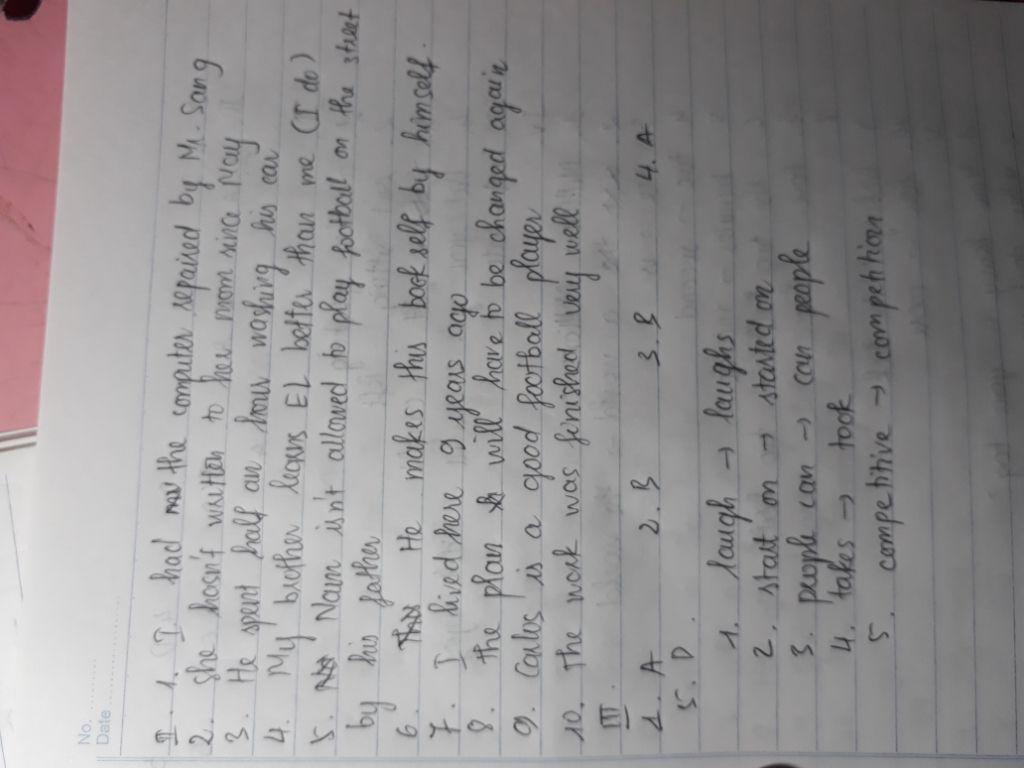 No.
Date
II. 1. I had the computer repaired by Mr. Sang
2. She hasn't written to her mom since May
3. He spent half an hour washing his car
4. My brother learns EL better than me (I do)
5. Nam isn't allowed to play football on the street
by his father
6. He makes this bookself by himself.
7. I lived here 9 years ago
8. the plan will have to be changed again
9. Carlos is a good football player
10. the work was finished very well
III.
1. A 2. B 3. B 4. A
5. D.
1. laugh → laughs
2. start on → started on
3. people can → can people
4. takes → took
5. competitive → competition.